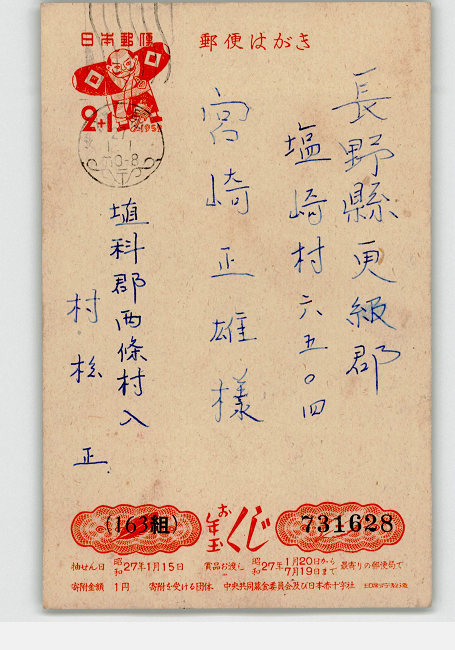 日本郵便
郵便はがき
2+1
27
1.1
0-8
長野縣更級郡
塩崎村六五〇四
宮崎正雄様
埴科郡西條村入
村松正
(163組)
お年玉くじ
731628
抽せん日 昭和27年1月15日 賞品お渡し 昭和27年1月20日から7月19日まで 最寄りの郵便局で
寄附金額 1円 寄附を受ける団体 中央共同募金委員会及び日本赤十字社